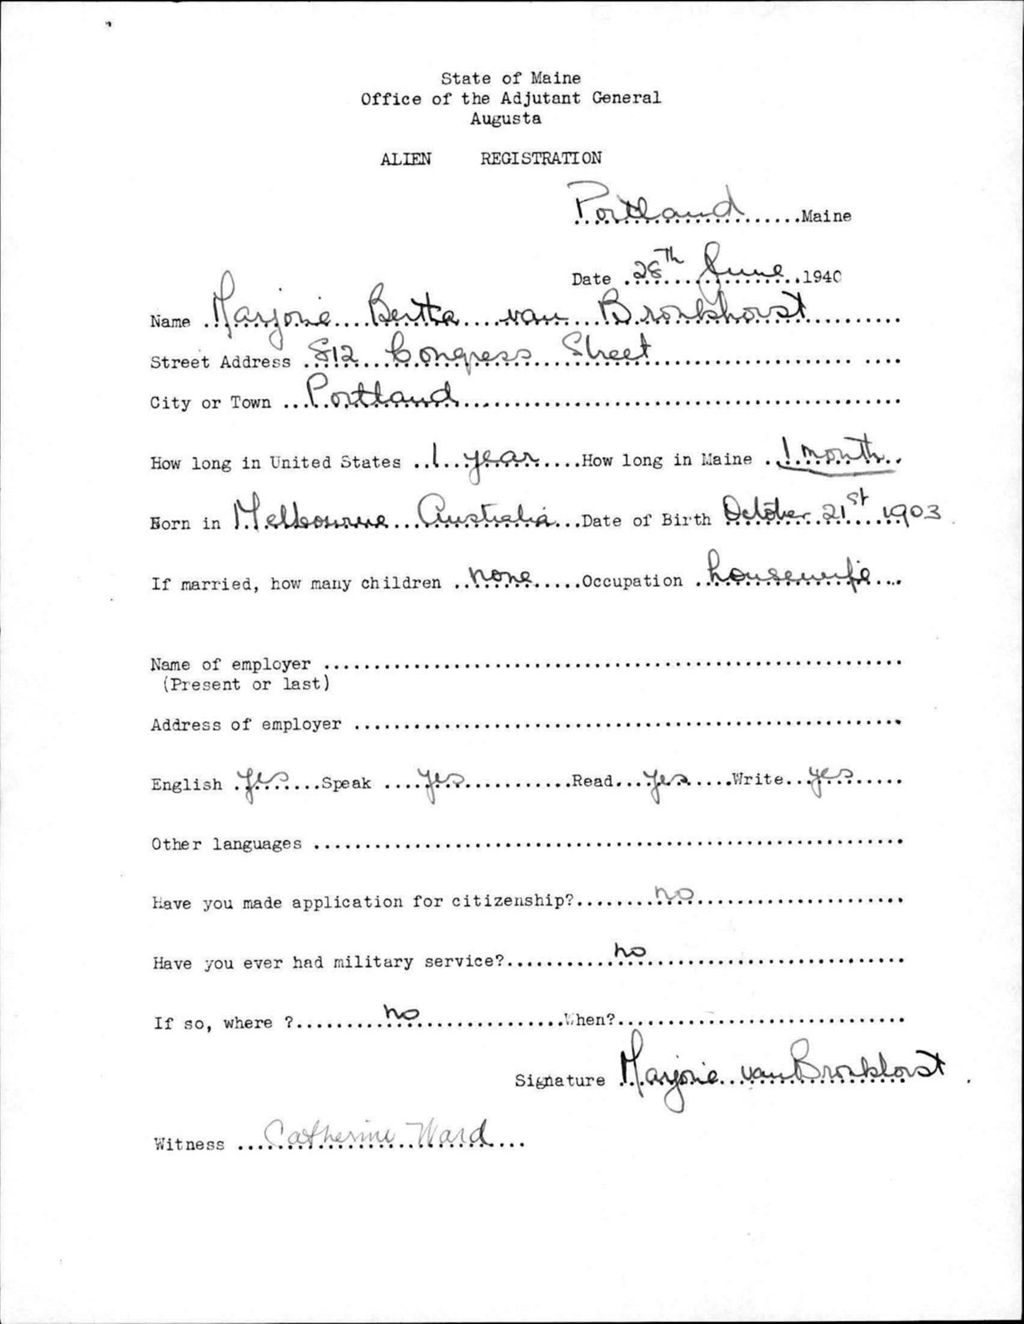 State of Maine
Office of the Adjutant General
Augusta
ALIEN REGISTRATION
Portland Maine
Date 28th June 1940
Name Marjorie Bertha van Bronkhorst
Street Address 812 Congress Street
City or Town Portland
How long in United States 1 year How long in Maine 1 month
Born in Melbourne Australia Date of Birth October 21st 1903
If married, how many children none Occupation housewife
Name of employer
(Present or last)
Address of employer
English yes Speak yes Read yes Write yes
Other languages
Have you made application for citizenship? no
Have you ever had military service? no
If so, where ? no When?
Signature Marjorie van Bronkhorst
Witness Catherine Ward